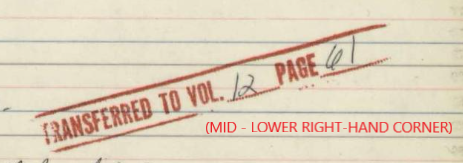 TRANSFERRED TO VOL. 12 PAGE 61
(MID - LOWER RIGHT-HAND CORNER)